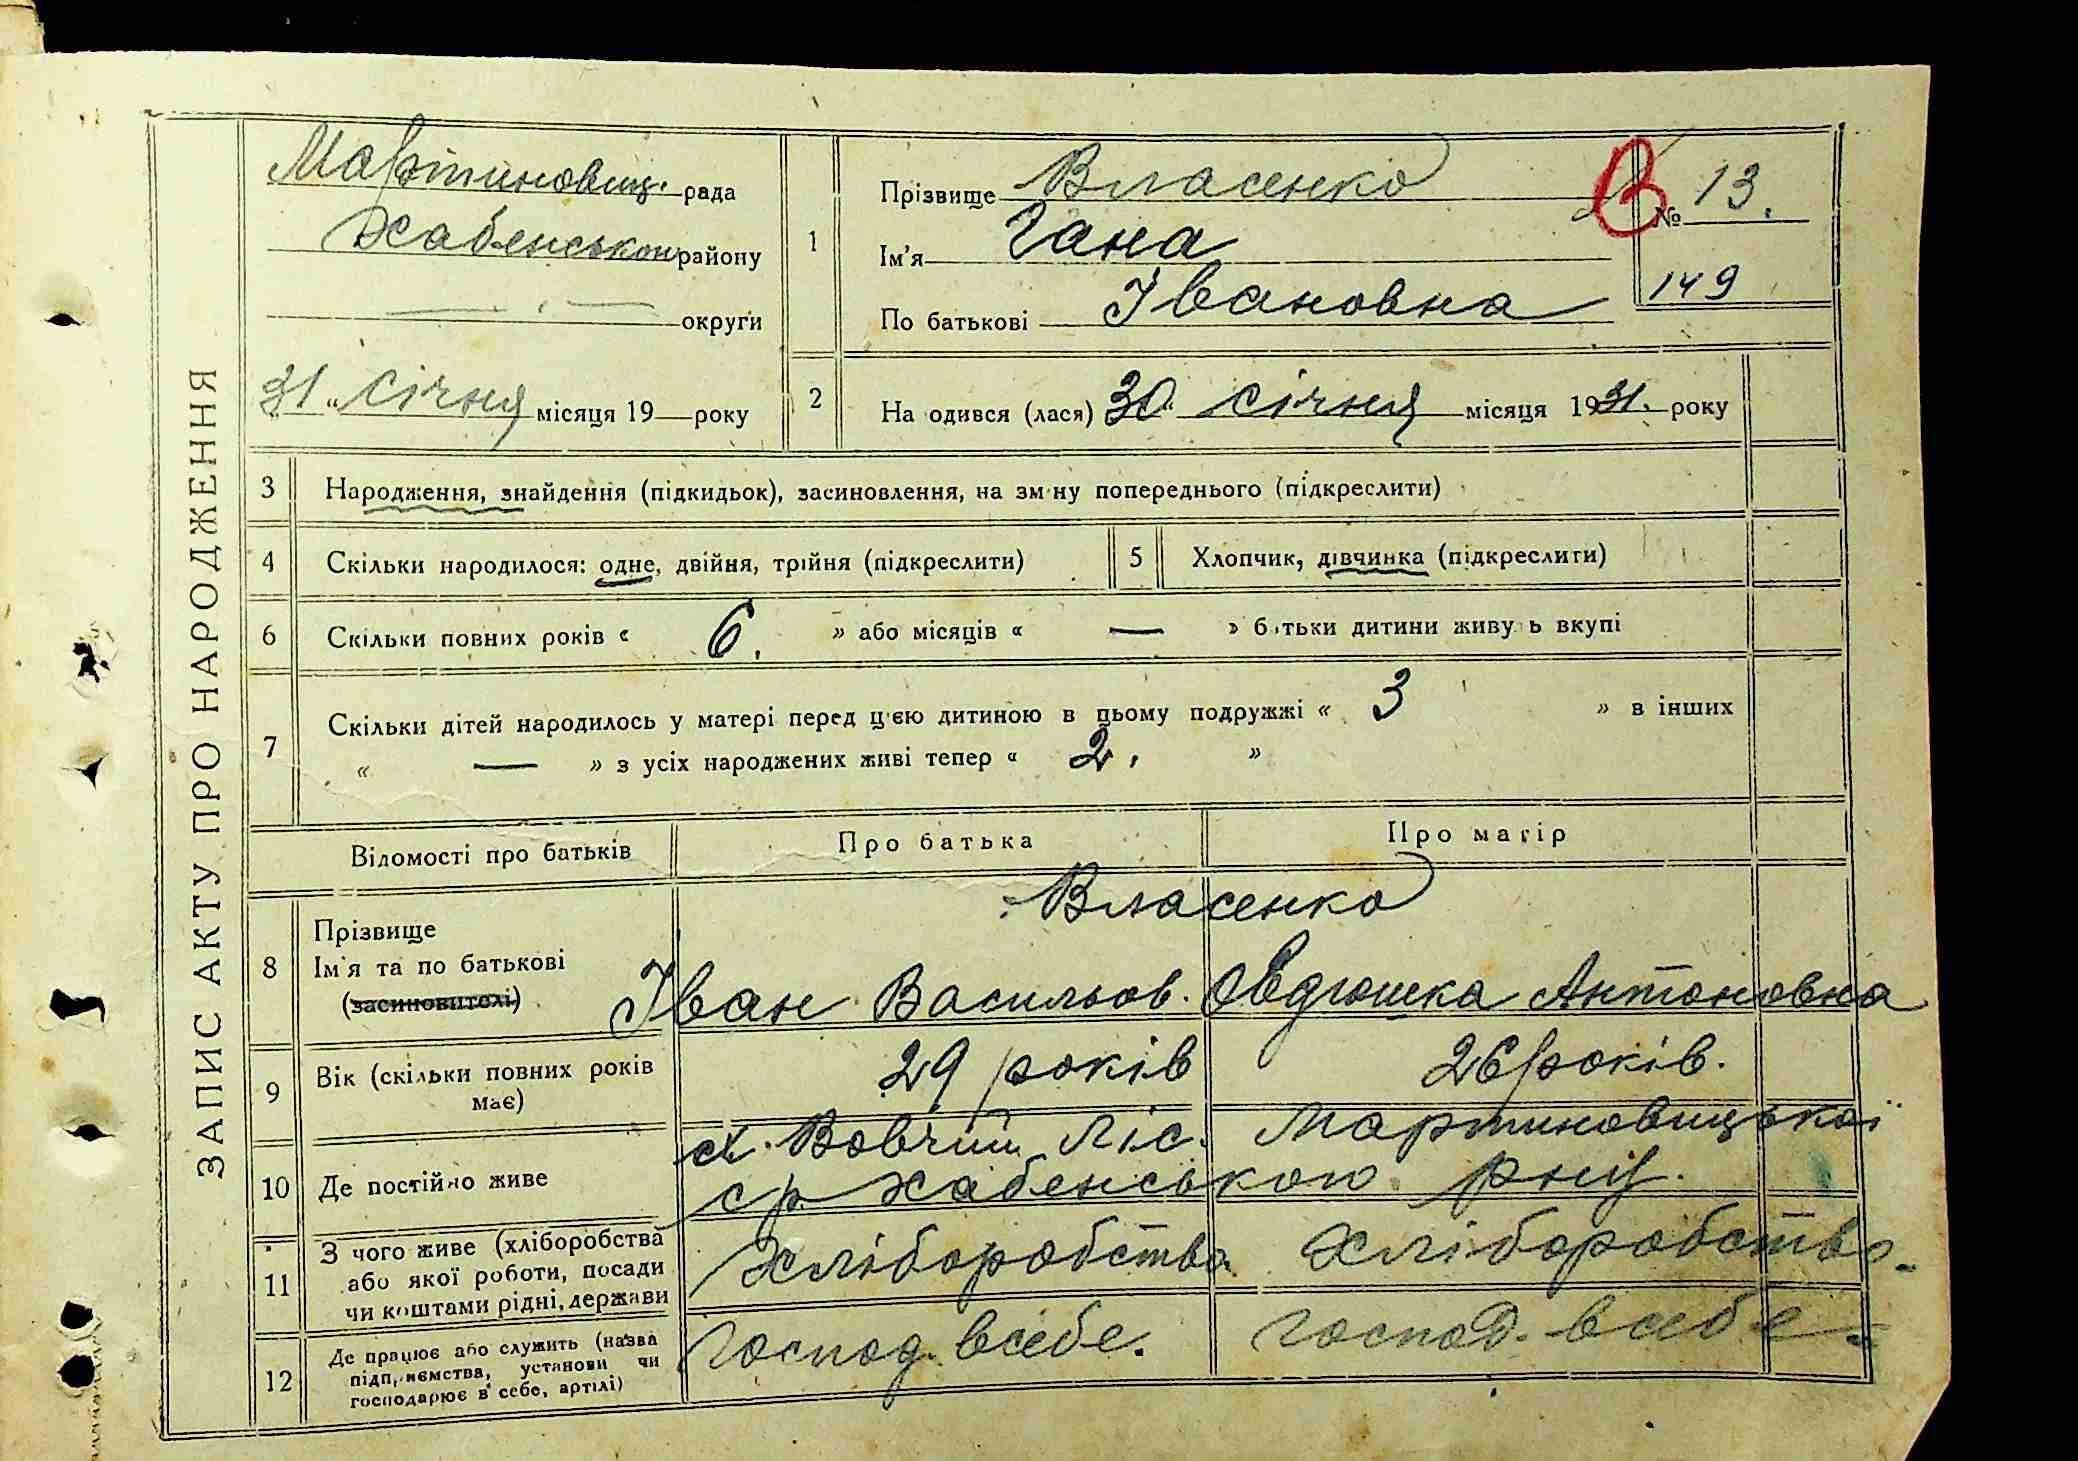 ЗАПИС АКТУ ПРО НАРОДЖЕННЯ
Мартиновиц. рада
Хабенського району
округи
31 " січня місяця 19 року
1
Прізвище Власенко
Ім'я Гана
По батькові Івановна
В
№ 13.
149
2
На одився (лася) 30 " січня місяця 1931. року
3 Народження, знайдення (підкидьок), засиновлення, на зм ну попереднього (підкреслити)
4 Скільки народилося: одне, двійня, трійня (підкреслити)
5 Хлопчик, дівчинка (підкреслити)
6 Скільки повних років « 6. » або місяців « — » б тьки дитини живу ь вкупі
7 Скільки дітей народилось у матері перед ц'єю дитиною в цьому подружжі « 3 » в інших
« — » з усіх народжених живі тепер « 2. »
Відомості про батьків
Про батька
Про матір
8 Прізвище
Ім'я та по батькові
(засиновителі)
Власенко
Іван Васильов. Овдюшка Антоновна
9 Вік (скільки повних років
має)
29 років
26 років.
10 Де постійно живе
х. Вовчий Ліс. Мартиновицької
ср Хабенського рну.
11 З чого живе (хліборобства
або якої роботи, посади
чи коштами рідні, держави
Хліборобства
Хліборобство.
12 Де працює або служить (назва
підпр ємства, установи чи
господарює в себе, артілі)
господ. в себе.
господ. в себе